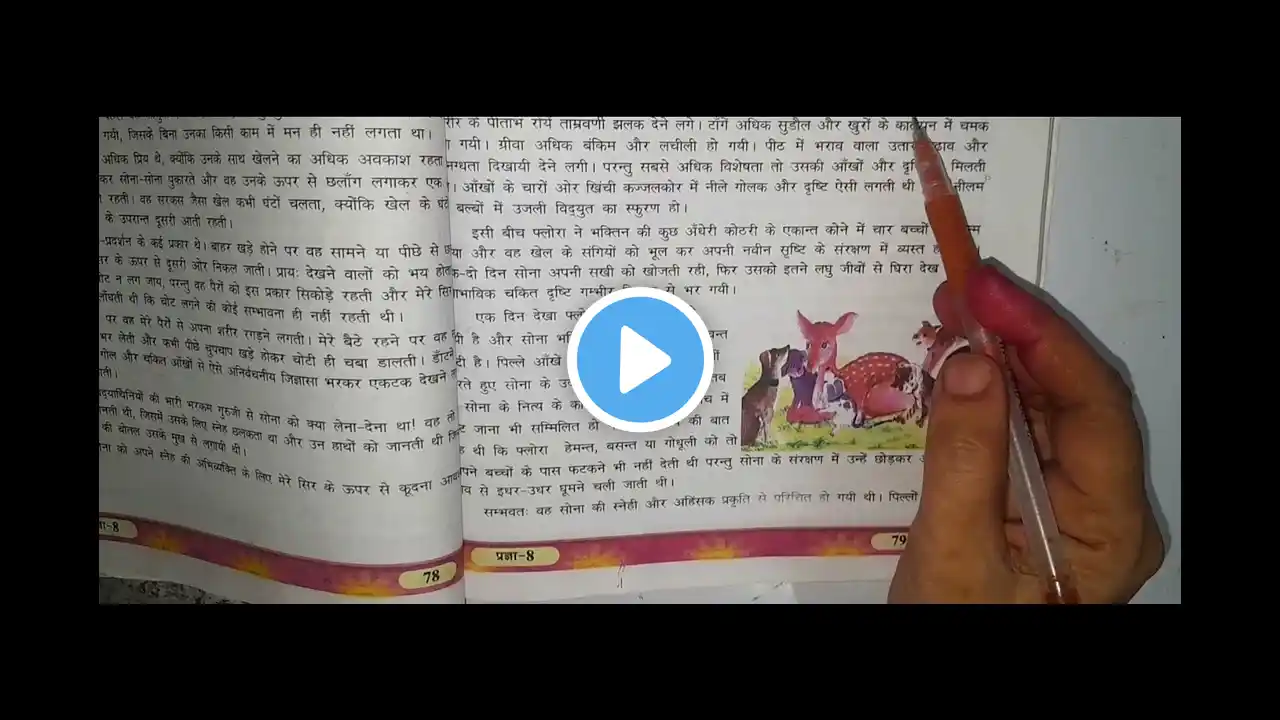 गयी, जिसके बिना उनका किसी काम में मन ही नहीं लगता था।
अधिक प्रिय थे, क्योंकि उनके साथ खेलने का अधिक अवकाश रहता
कर सोना-सोना पुकारते और वह उनके ऊपर से छलाँग लगाकर एक
रहती। वह सरकस जैसा खेल कभी घंटों चलता, क्योंकि खेल के घंटे
के उपरान्त दूसरी आती रहती।
-प्रदर्शन के कई प्रकार थे। बाहर खड़े होने पर वह सामने या पीछे से
के ऊपर से दूसरी ओर निकल जाती। प्रायः देखने वालों को भय होता
न लग जाय, परन्तु वह पैरों को इस प्रकार सिकोड़े रहती और मेरे सिर
लाँघती थी कि चोट लगने की कोई सम्भावना ही नहीं रहती थी।
पर वह मेरे पैरों से अपना शरीर रगड़ने लगती। मेरे बैठे रहने पर वह
भर लेती और कभी पीछे चुपचाप खड़े होकर चोटी ही चबा डालती। डाँटने
गोल और चकित आँखों से ऐसे अनिर्वचनीय जिज्ञासा भरकर एकटक देखने
की भारी भरकम गुरुजी से सोना को क्या लेना-देना था! वह तो
थी, जिसमें उसके लिए स्नेह छलकता था और उन हाथों को जानती थी
की बोतल उसके मुख से लगायी थी।
को अपने स्नेह की अभिव्यक्ति के लिए मेरे सिर के ऊपर से कूदना
-8
78
के पीताभ रोयें ताम्रवर्णी झलक देने लगे। टाँगें अधिक सुडौल और खुरों के में चमक
गयी। ग्रीवा अधिक बंकिम और लचीली हो गयी। पीठ में भराव वाला और
दिखायी देने लगी। परन्तु सबसे अधिक विशेषता तो उसकी आँखों और मिलती
। आँखों के चारों ओर खिंची कज्जलकोर में नीले गोलक और दृष्टि ऐसी लगती थी नीलम
बल्बों में उजली विद्युत का स्फुरण हो।
इसी बीच फ्लोरा ने भक्तिन की कुछ अँधेरी कोठरी के एकान्त कोने में चार बच्चों
और वह खेल के संगियों को भूल कर अपनी नवीन सृष्टि के संरक्षण में व्यस्त
-दो दिन सोना अपनी सखी को खोजती रही, फिर उसको इतने लघु जीवों से घिरा देख
चकित दृष्टि गम्भीर से भर गयी।
एक दिन देखा
है और सोना
है। पिल्ले आँखे
हुए सोना के
सोना के नित्य के में
जाना भी सम्मिलित हो की बात
थी कि फ्लोरा हेमन्त, बसन्त या गोधूली को तो
बच्चों के पास फटकने भी नहीं देती थी परन्तु सोना के संरक्षण में उन्हें छोड़कर
से इधर-उधर घूमने चली जाती थी।
सम्भवतः वह सोना की स्नेही और अहिंसक प्रकृति से परिचित हो गयी थी। पिल्लों
प्रज्ञा-8
79